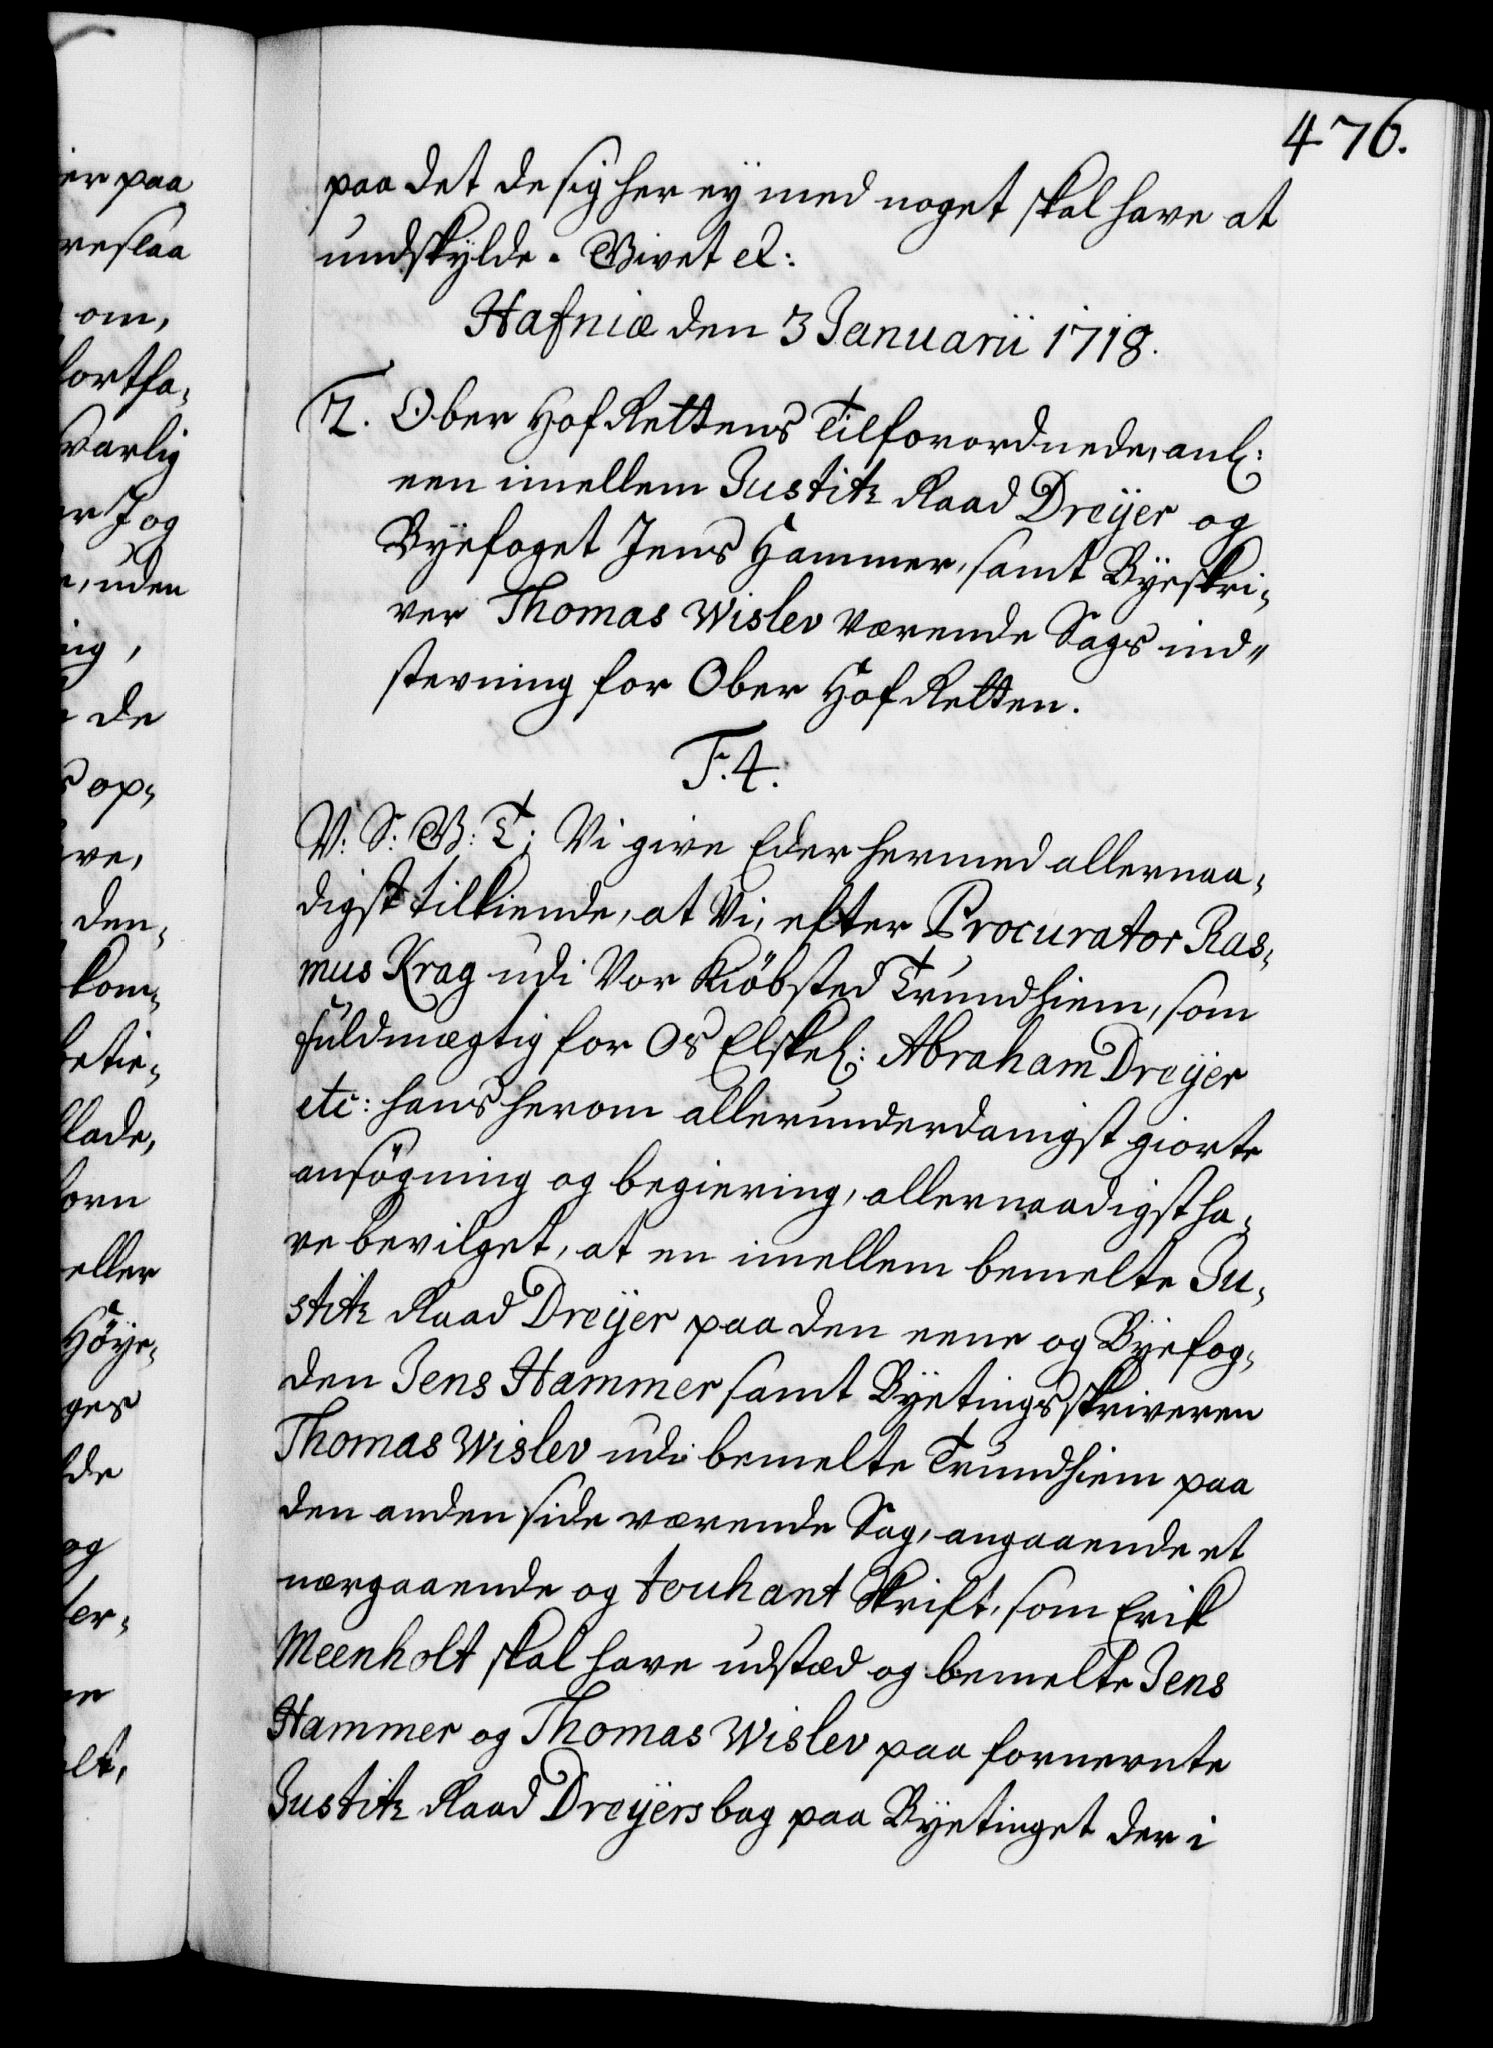 476.
ier paa
reslaa
om,
fortfa-
svarlig
er I og
e, uden
nig,
de
s op-
ve,
den-
kom-
betie-
lade,
horn
eller
Høye-
ges
lde
og
ter-
ne
elt,
paa det de sig her eÿ med noget skal have at
undskÿlde. Givet et:
Hafniæ den 3 Januarii 1718.
7. Ober Hof Rettens Tilforordnede, anl:
een imellem Justitz Raad Dreÿer og
Bÿefoget Jens Hammer, samt Bÿeskri-
ver Thomas Wislev værende Sags ind-
stevning for Ober Hof Retten.
F. 4.
V: S: G: T: Vi give Eder hermed allernaa-
digst tilkiende, at Vi, efter Procurator Ras-
mus Krag udi Vor Kiöbsted Trundhiem, som
fuldmægtig for Os Elskel: Abraham Dreÿer
etc: hans herom allerunderdanigst giorte
ansögning og begiering, allernaadigst ha-
ve bevilget, at en imellem bemelte Ju-
stitz Raad Dreÿer paa den eene og Bÿefog-
den Jens Hammer samt Bÿetingsskriveren
Thomas Wislev udi bemelte Trundhiem paa
den anden side værende Sag, angaaende et
nærgaaende og touhant Skrift, som Erik
Meenholt skal have udstæd og bemelte Jens
Hammer og Thomas Wislev paa fornevnte
Justitz Raad Dreÿers bag paa Bÿetinget der i